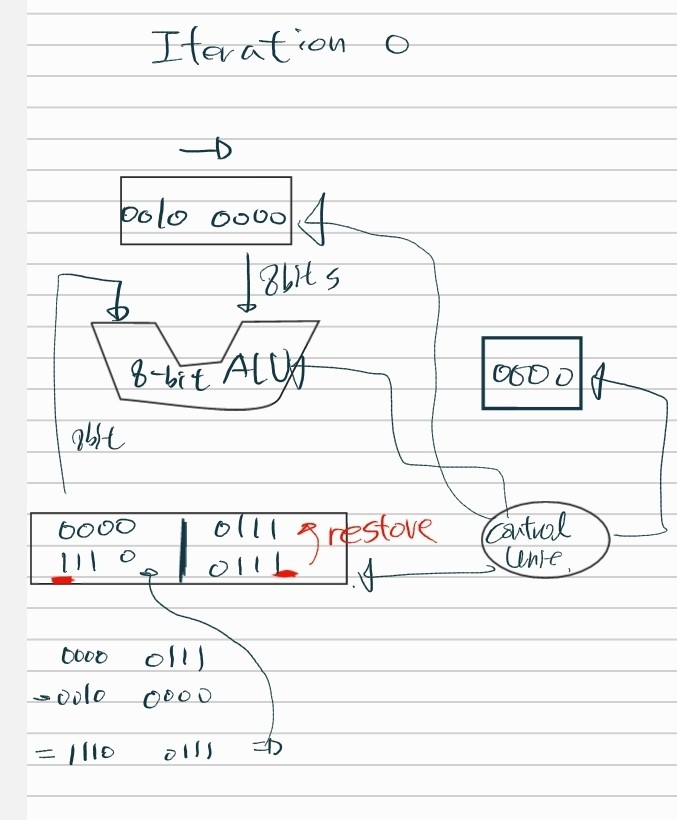 Iteration 0
0010 0000
8bits
8-bit ALU
0000
8bit
0000 0111
restore
1110 0111
Control
Unite.
0000 0111
-0010 0000
= 1110 0111 =D